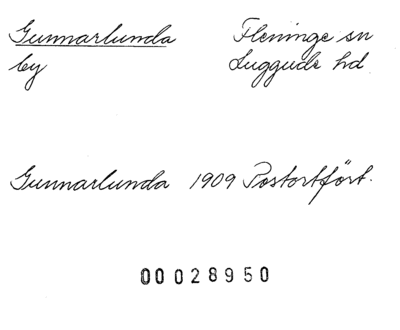 Gunnarlunda Fleninge sn
by Luggude hd
Gunnarlunda 1909 Postortfört.
00028950